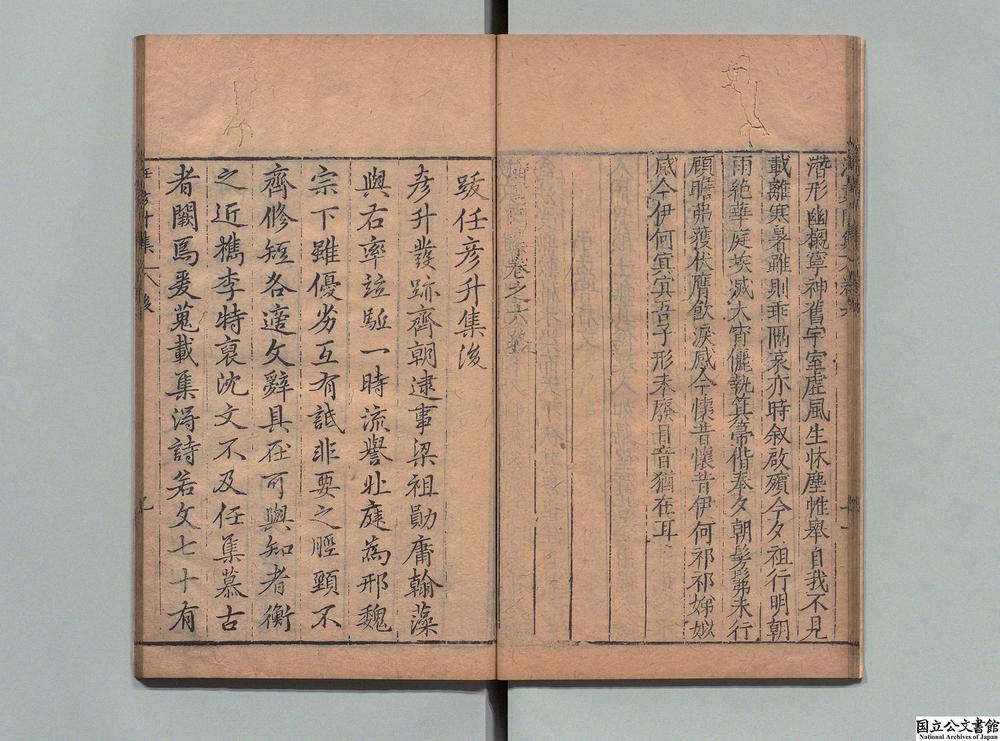 潛形幽櫬寧神舊宇室虛風生牀塵帷舉自我不見
載離寒暑雖則乖隔哀亦時叙啟殯今夕祖行明朝
雨絶華庭埃滅大宵儷執箕箒偕奉夕朝髣髴未行
顧瞻弗獲伏膺飲淚感今懷昔懷昔伊何祁祁娣姒
感今伊何冥冥吾子形未廢目音猶在耳
卷之六終
跋任彦升集後
彦升發跡齊朝逮事梁祖勛庸翰藻
與右率竝驅一時流譽北庭為邢魏
宗下雖優劣互有詆非要之脛頸不
齊脩短各適文辭具在可與知者衡
之近攜李特裒沈文不及任集慕古
者闕焉爰蒐載集得詩若文七十有
任彦升集
後
国立公文書館
National Archives of Japan